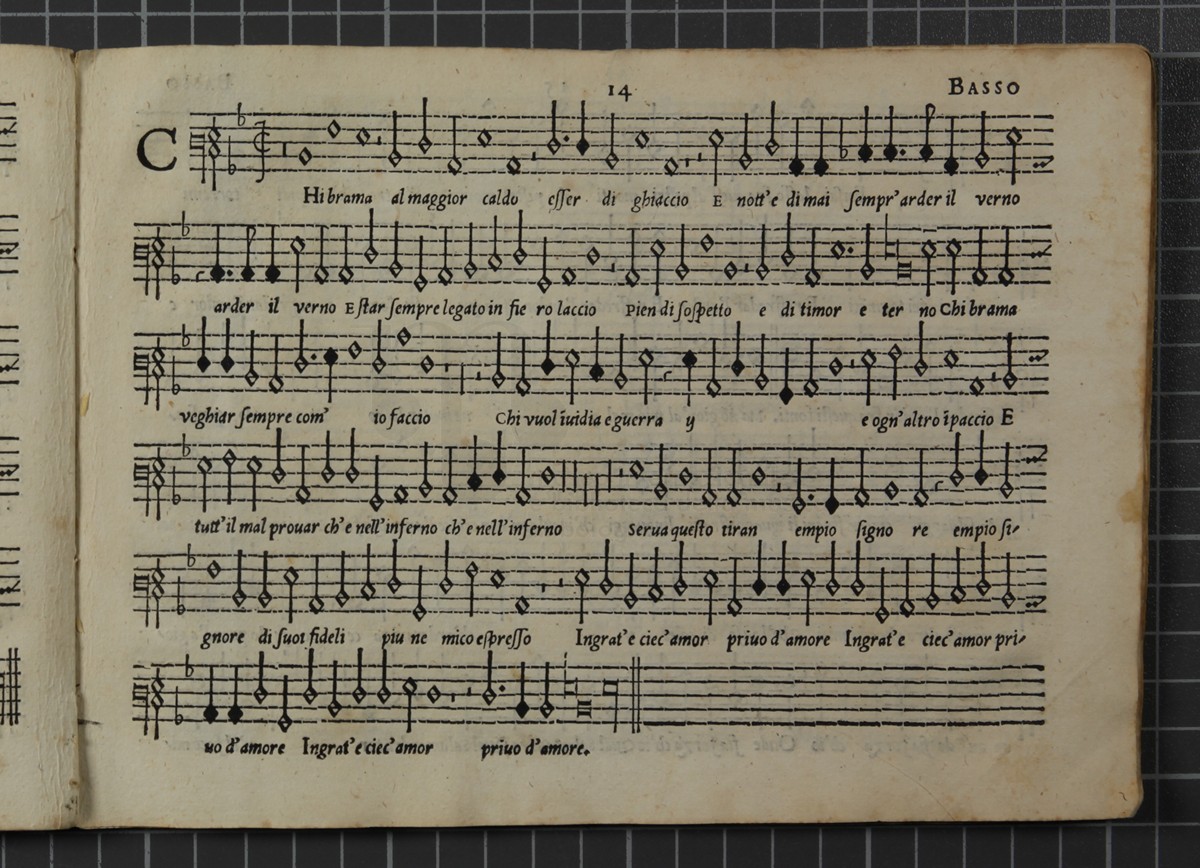 14
BASSO
CHi brama al maggior caldo esser di ghiaccio E nott'e di mai sempr'arder il verno
arder il verno E star sempre legato in fie ro laccio Pien di sospetto e di timor e ter no Chi brama
veghiar sempre com' io faccio Chi vuol iuidia e guerra y e ogn'altro ĩpaccio E
tutt'il mal prouar ch'e nell'inferno ch'e nell'inferno Serua questo tiran empio signo re empio si-
gnore di suoi fideli piu ne mico espresso Ingrat'e ciec'amor priuo d'amore Ingrat'e ciec'amor pri-
uo d'amore Ingrat'e ciec'amor priuo d'amore.